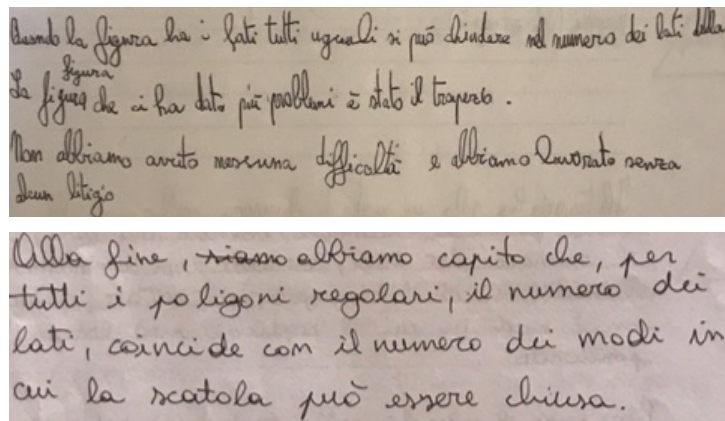 Quando la figura ha i lati tutti uguali si può chiudere nel numero dei lati della
figura
La figura che ci ha dato più problemi è stato il trapezio.
Non abbiamo avuto nessuna difficoltà e abbiamo lavorato senza
alcun litigio
Alla fine, siamo abbiamo capito che, per
tutti i poligoni regolari, il numero dei
lati, coincide con il numero dei modi in
cui la scatola può essere chiusa.